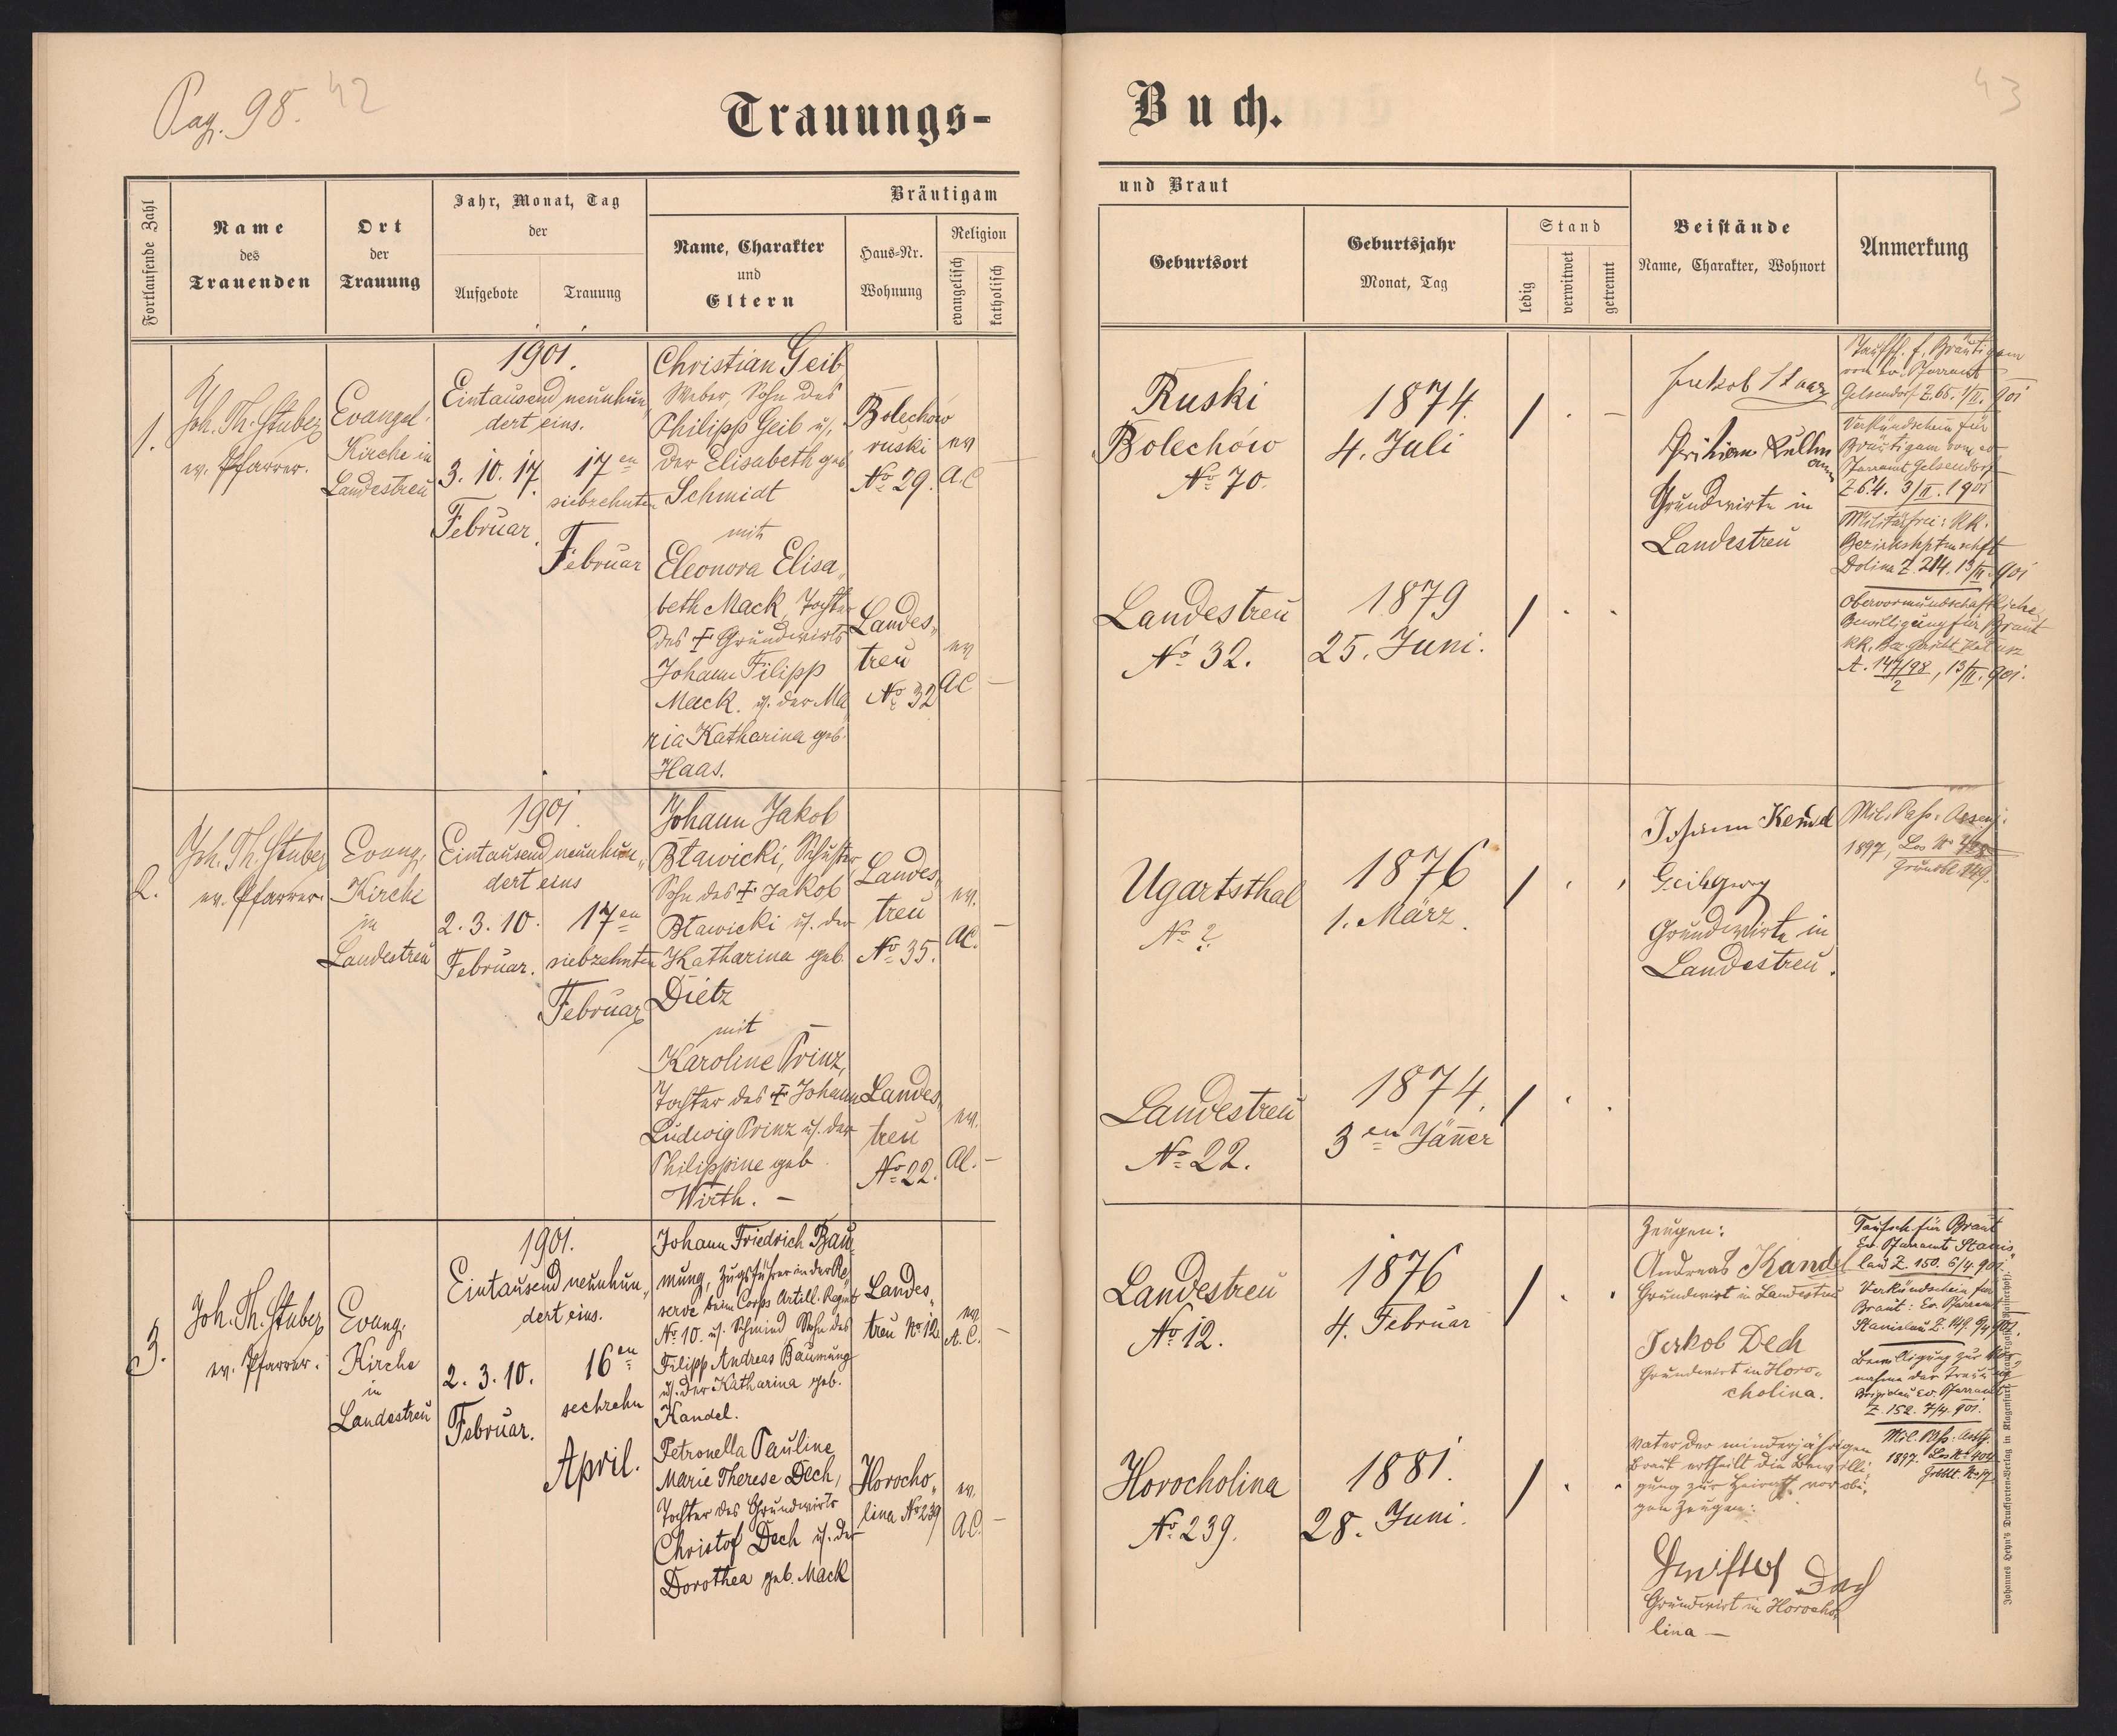 Pag. 98. 42
43
Trauungs-
Buch.
Fortlaufende Zahl
Name
des
Trauenden
Ort
der
Trauung
Jahr, Monat, Tag
der
Aufgebote
Trauung
Bräutigam
Name, Charakter
und
Eltern
Haus-Nr.
Wohnung
Religion
evangelisch
katholisch
und Braut
Geburtsort
Geburtsjahr
Monat, Tag
Stand
ledig
verwitwet
getrennt
Beistände
Name, Charakter, Wohnort
Anmerkung
1.
Joh. Th. Stuber
ev. Pfarrer.
Evangel.
Kirche in
Landestreu
1901.
Eintausend neunhun„
dert eins.
3. 10. 17.
Februar.
17en
siebzehnten
Februar
Christian Geib
Weber, Sohn des
Philipp Geib u.
der Elisabeth geb.
Schmidt
mit
Eleonora Elisa„
beth Mack, Tochter
des † Grundwirts
Johann Filipp
Mack. u. der Ma
ria Katharina geb.
Haas.
Bolechów
ruski
No 29.
ev
A.C
Landes„
treu
No 32
ev
AC
Ruski
Bolechów
No 70.
1874.
4. Juli
Landestreu
No 32.
1879
25. Juni.
Jakob
Grundwirte in
Landestreu
Taufsch. f. Bräutigam
von ev. Pfarramt
Gelsendorf Z. 65. 1/II. 901
Verkündschein für
Bräutigam vom ev
Pfarramt Gelsendorf
Z 64. 3/II. 1901
Militärfrei: KK.
Bezirkshptmschft
Dolina Z. 214. 13/II. 901
Obervormundschaftliche
Bewilligung für Braut
KK. Bez. Gericht
A. 147/98/2, 13/II. 901.
2.
Joh. Th. Stuber
ev. Pfarrer.
Evang.
Kirche
in
Landestreu
1901
Eintausend neunhun„
dert eins
2. 3. 10.
Februar.
17en
siebzehnten
Februar
Johann Jakob
Bławicki, Schuster
Sohn des † Jakob
Bławicki u. der
Katharina geb.
Dietz
mit
Karoline Prinz,
Tochter des † Johann
Ludwig Prinz u. der
Philippine geb.
Wirth. –
Landes„
treu
No 35.
ev.
AC.
Landes„
treu
No 22.
ev.
AC.
Ugartsthal
No ?
1876
1. März.
Landestreu
No 22.
1874.
3en Jänner
Johann
Grundwirte in
Landestreu.
Mil. Paß:
1897, Los No
3.
Joh. Th. Stuber
ev. Pfarrer.
Evang.
Kirche
in
Landestreu
1901.
Eintausend neunhun„
dert eins.
2. 3. 10.
Februar.
16en
sechzehn
April.
Johann Friedrich Bau„
mung, Zugsführer in der Re„
serve beim Corps Artill. Regmt
No 10. u. Schmied Sohn des
Filipp Andreas Baumung
u. der Katharina geb.
Kandel.
Petronella Pauline
Marie Therese Dech,
Tochter des Grundwirts
Christof Dech u. der
Dorothea geb. Mack
Landes„
treu No 12.
ev
A. C.
Horocho„
lina No 239
ev.
AC.
Landestreu
No 12.
1876
4. Februar
Horocholina
No 239.
1881.
28. Juni.
Zeugen:
Andreas Kandel
Grundwirt in Landestreu
Jakob Dech
Grundwirt in Horo-
cholina.
Vater der minderjährigen
Braut ertheilt die Bewilli„
gung zur Heirath vor obi„
gen Zeugen:
Christof Dech
Grundwirt in Horocho„
lina –
Taufsch für Braut
Ev. Pfarramt Stanis„
lau Z. 150. 6/4 901
Verkündschein für
Braut: Ev. Pfarramt
Stanislau Z. 149. 9/4 901.
Bewilligung zur Vor„
nahme der Trauung
Ev. Pfarramt
Z. 152. 7/4. 901.
Mil. Paß:
1897. Los No 404
Johannes Heyn's Drucksorten-Verlag in Klagenfurt